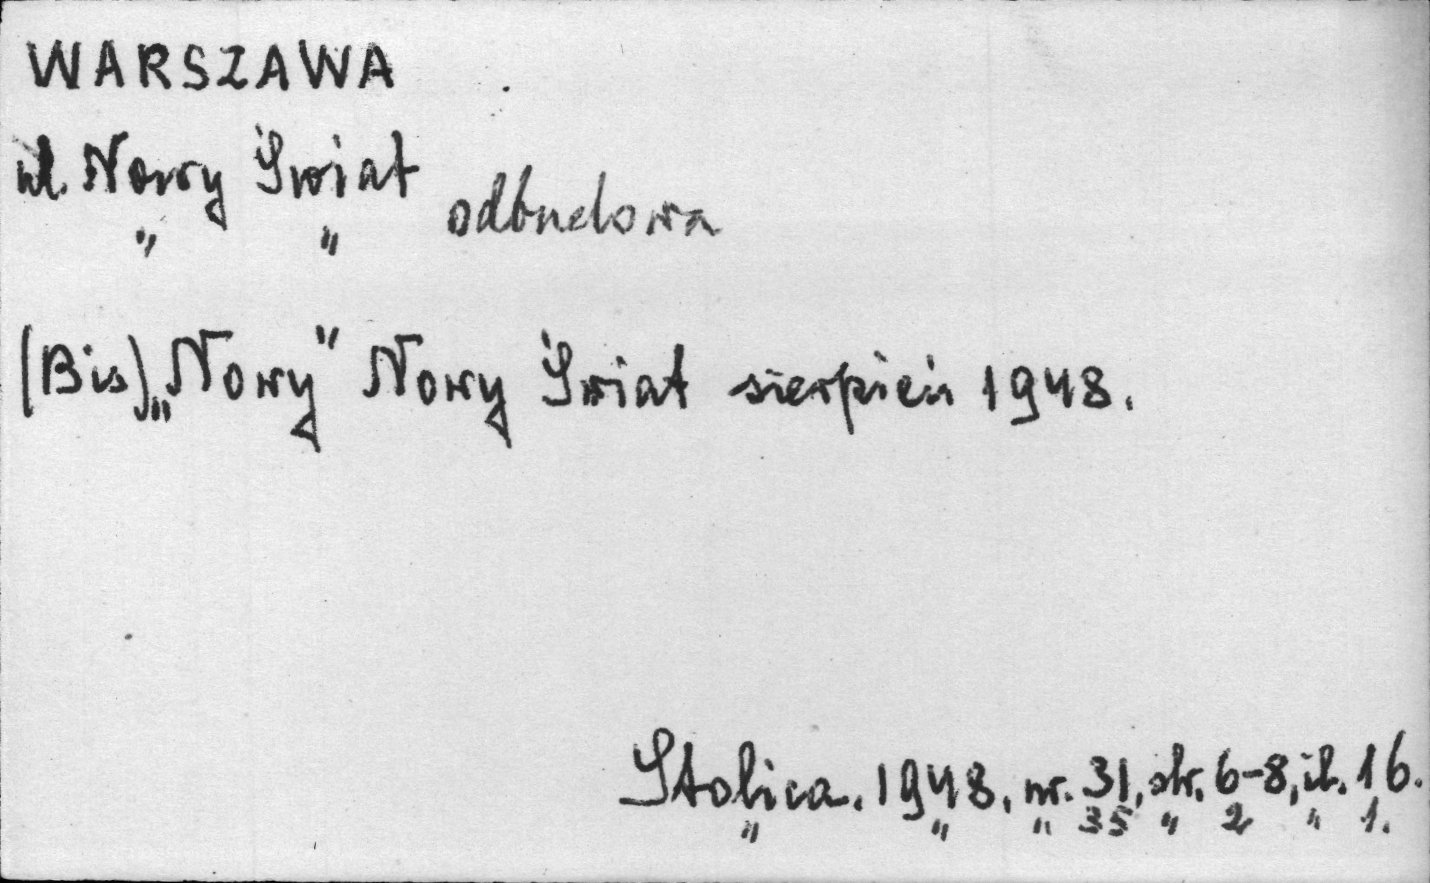 WARSZAWA
ul. Nowy Świat
" " odbudowa
(Bis) „Nowy" Nowy Świat sierpień 1948.
Stolica. 1948, nr. 31, str. 6-8, il. 16.
" " " 35 " 2 " 1.